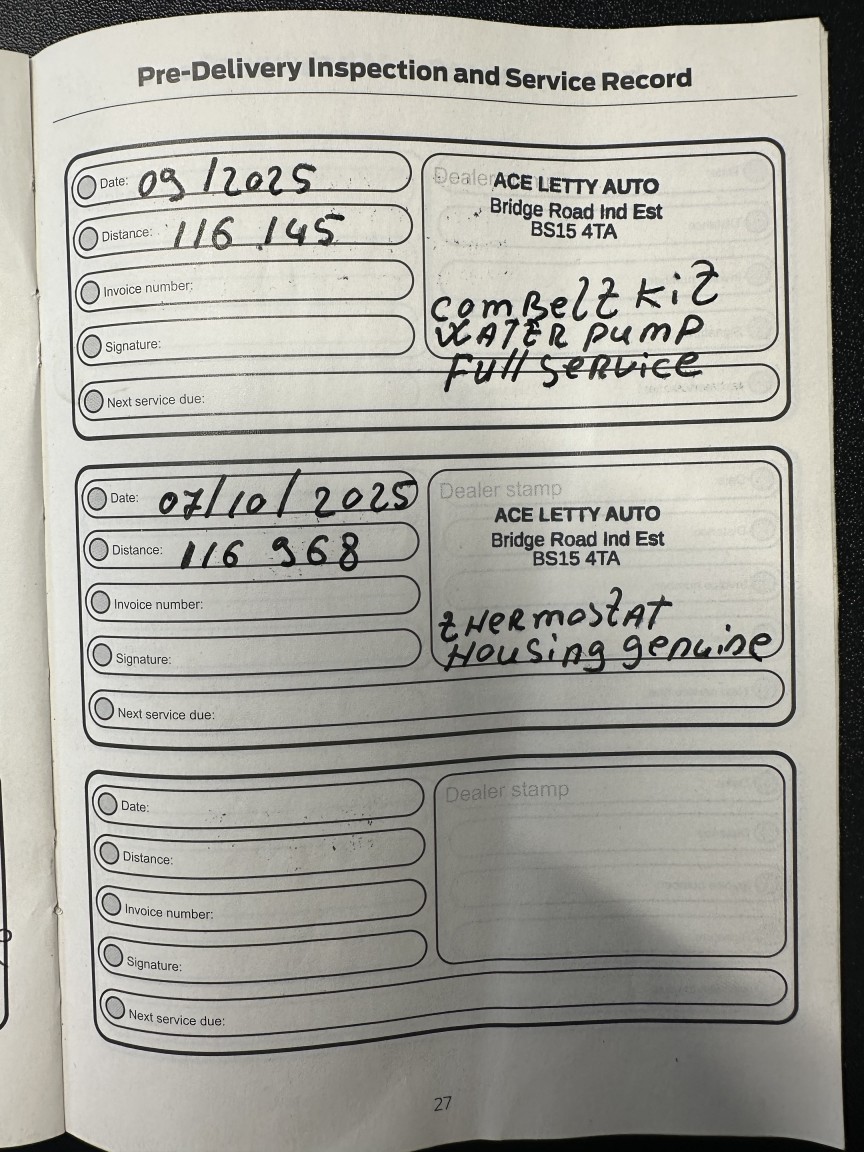 Pre-Delivery Inspection and Service Record
Date: 09/2025
Distance: 116 145
Invoice number:
Signature:
Next service due:
Dealer
ACE LETTY AUTO
Bridge Road Ind Est
BS15 4TA
comBelt kit
WATER pump
Full SERVICE
Date: 07/10/2025
Distance: 116 968
Invoice number:
Signature:
Next service due:
Dealer stamp
ACE LETTY AUTO
Bridge Road Ind Est
BS15 4TA
tHERmostAT
Housing genuine
Date:
Distance:
Invoice number:
Signature:
Next service due:
Dealer stamp
27